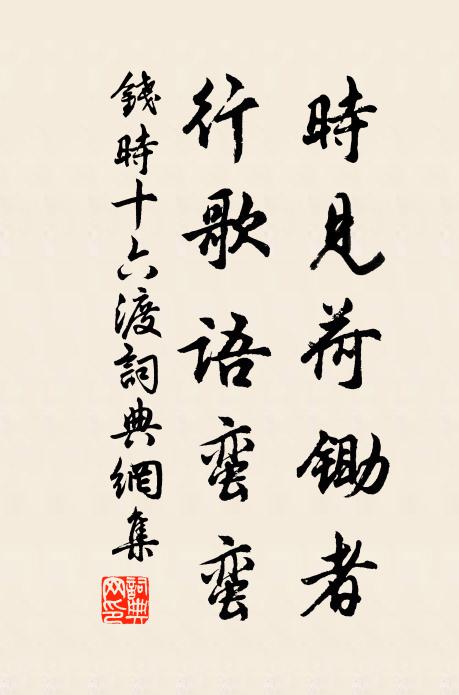 時見荷鋤者
行歌語蛮蛮
錢時十六渡詞典網集
詞典网印